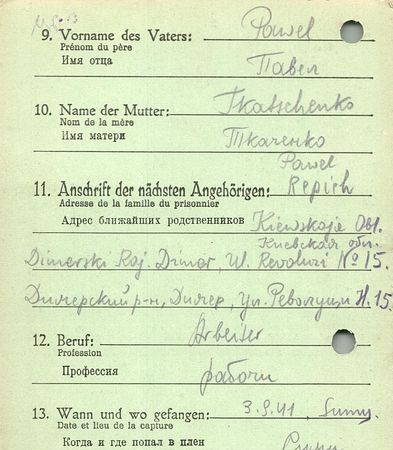 9. Vorname des Vaters: Pawel
Prénom du père
Имя отца Павел
10. Name der Mutter: Tkatschenko
Nom de la mère
Имя матери Ткаченко
Pawel
11. Anschrift der nächsten Angehörigen: Repich
Adresse de la famille du prisonnier
Адрес ближайших родственников Kiewskaja Obl.
Киевская обл.
Dimerski Raj. Dimer, Ul. Revoluzi № 15.
Димерский р-н, Димер, ул. Революции Н. 15.
12. Beruf: Arbeiter
Profession
Профессия рабочи
13. Wann und wo gefangen: 3.9.41, Sumy.
Date et lieu de la capture
Когда и где попал в плен